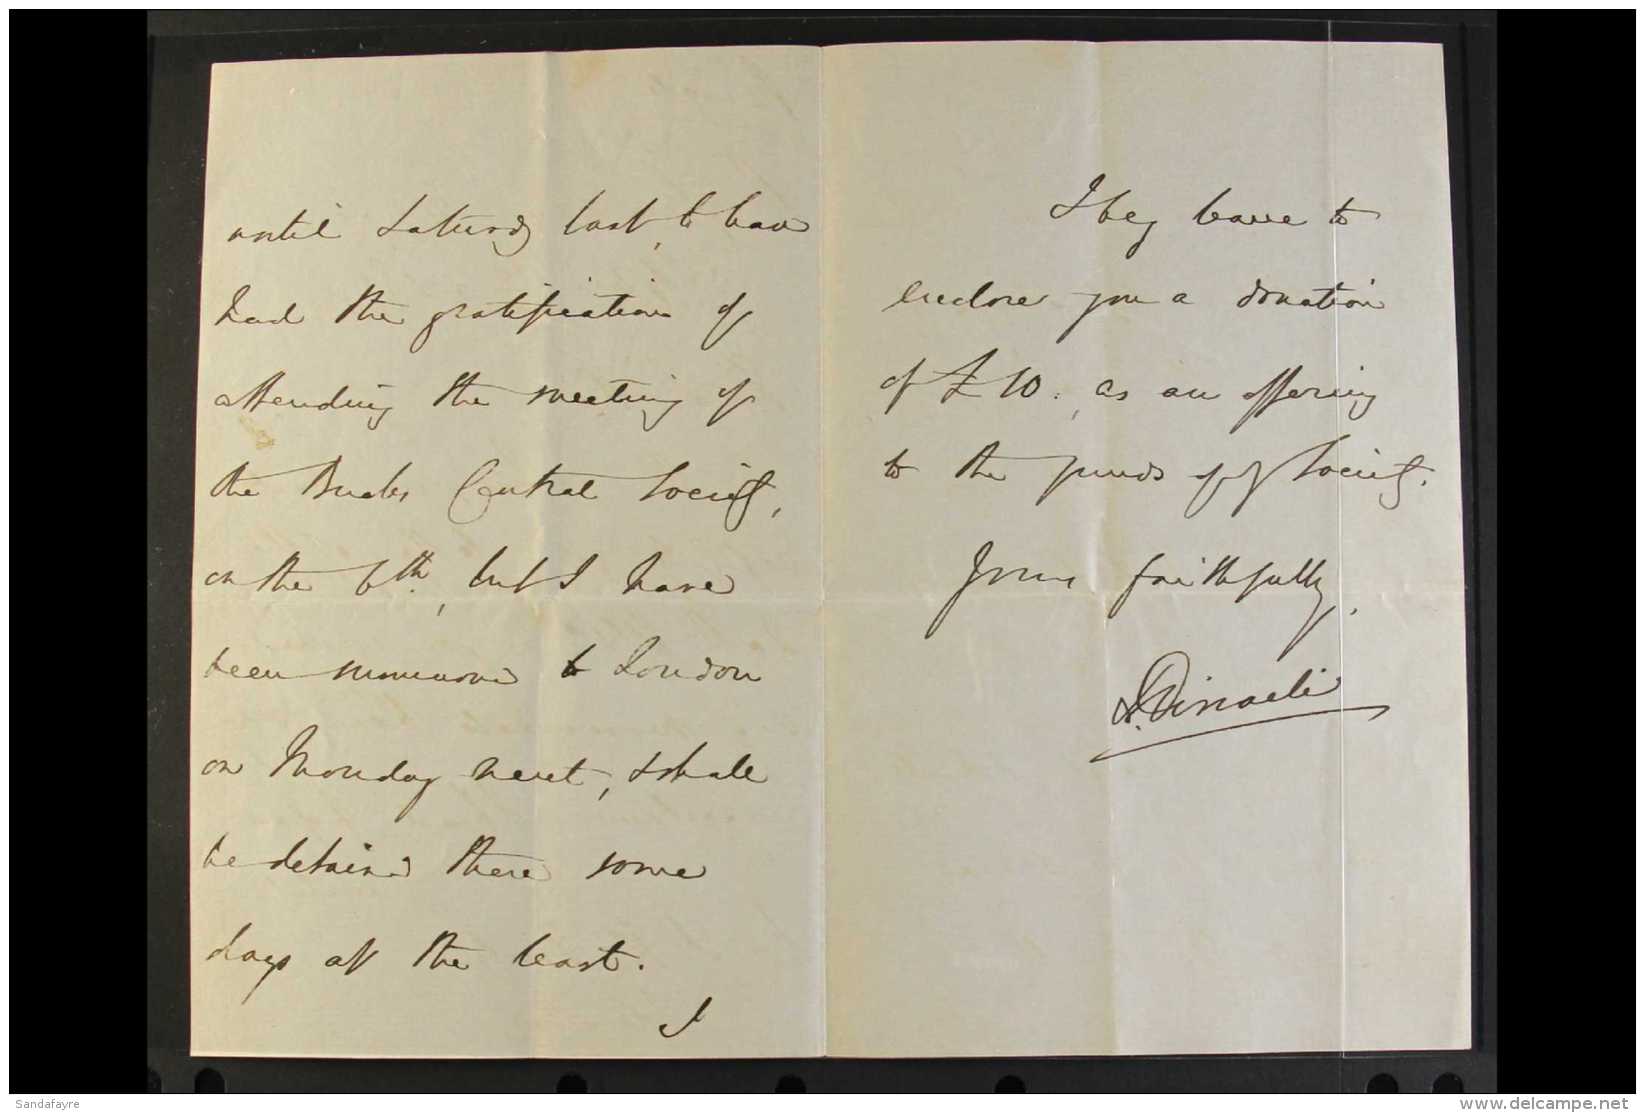 until Saturday last, to have
had the gratification of
attending the meeting of
the Bucks Central Society,
on the 6th, but I have
been summoned to London
on Monday next, & shall
be detained there some
days at the least.
I
I beg leave to
enclose you a donation
of £10:, as an offering
to the funds of yr Society.
Yours faithfully,
B. Disraeli
Sandafayre
www.delcampe.net